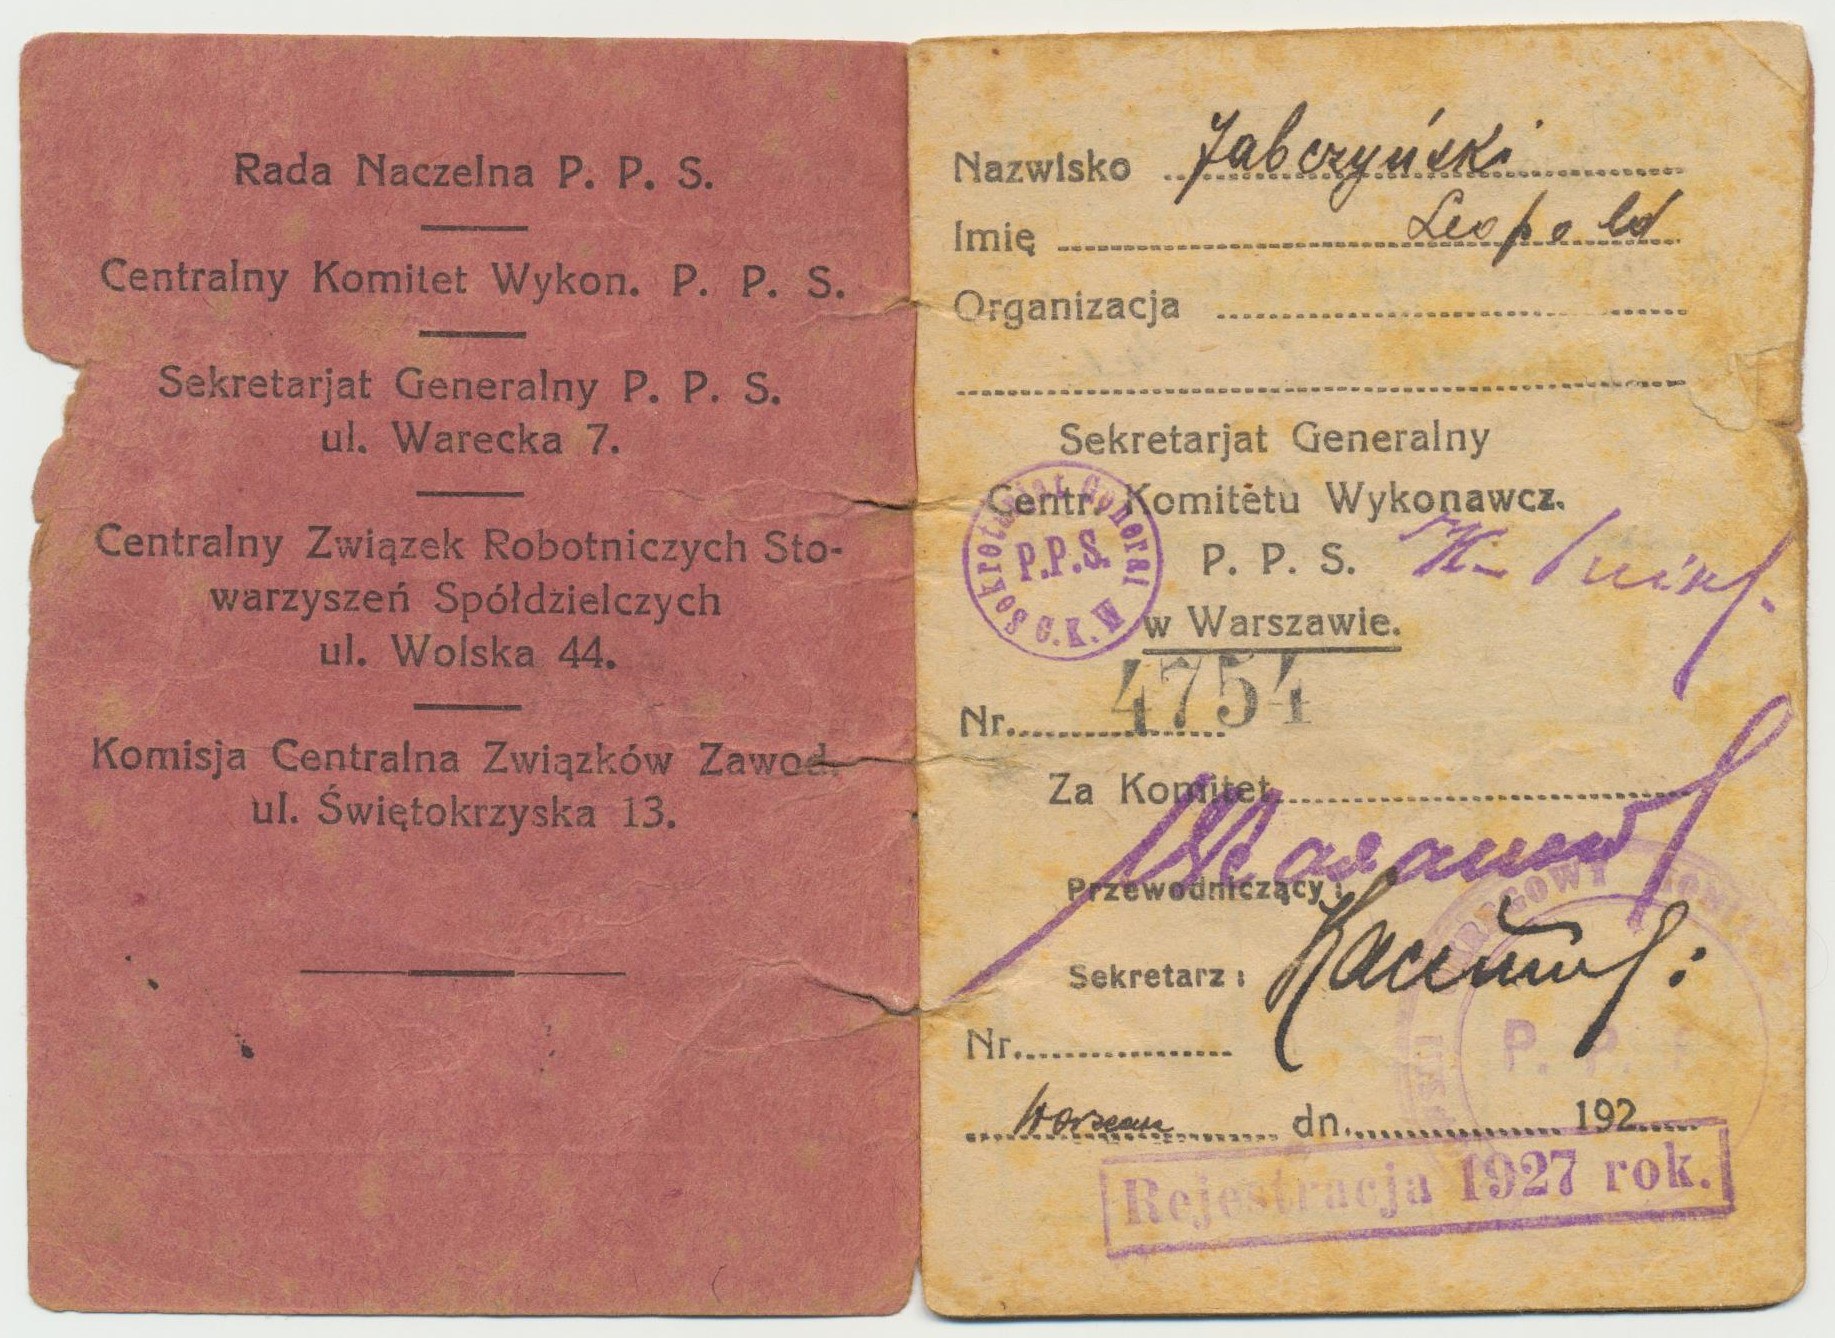 Rada Naczelna P. P. S.
Centralny Komitet Wykon. P. P. S.
Sekretarjat Generalny P. P. S.
ul. Warecka 7.
Centralny Związek Robotniczych Sto-
warzyszeń Spółdzielczych
ul. Wolska 44.
Komisja Centralna Związków Zawod.
ul. Świętokrzyska 13.
Nazwisko Jabczyński
Imię Leopold
Organizacja
Sekretarjat Generalny
Centr. Komitetu Wykonawcz.
P. P. S.
w Warszawie.
Sekretarjat Generalny
P.P.S.
C.K.W
Nr. 4754
Za Komitet
Przewodniczący:
Sekretarz:
OKRĘGOWY
P. P.
Nr.
dn. 192
Rejestracja 1927 rok.